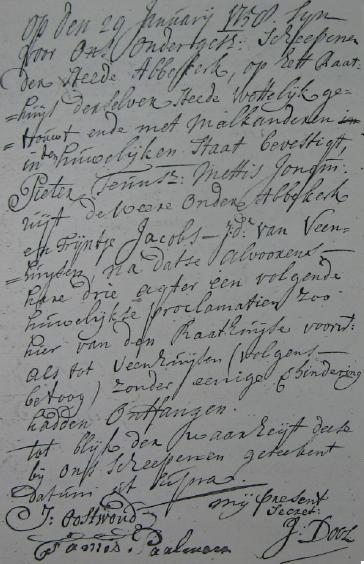 Op den 29 Januarij 1758. Syn
voor Ons Ondergesz: Scheepenen
der Steede Abbekerk, op het Raat:
=huijs derselver Steede Wettelijk ge=
=trouwt ende met malkanderen in
in den huwelijken Staat bevestigt,
Pieter Teunisz: Mettis Jongm:
uijt de weere onder Abbekerk
en Trijntje Jacobs - j:d: van Veen=
=huijsen, na datse alvoorens
hare drie agter een volgende
huwelijkse proclamatien zoo
hier van den Raathuijse voorn:
als tot Veenhuijsen (volgens
betoog) zonder eenige hindering
hadden Ontfangen.
tot blijk der waarheijt deese
bij ons Scheepenen geteekent
datum ut Supra.
mij present
Secret:
J: Oostwoud
J: Dooz